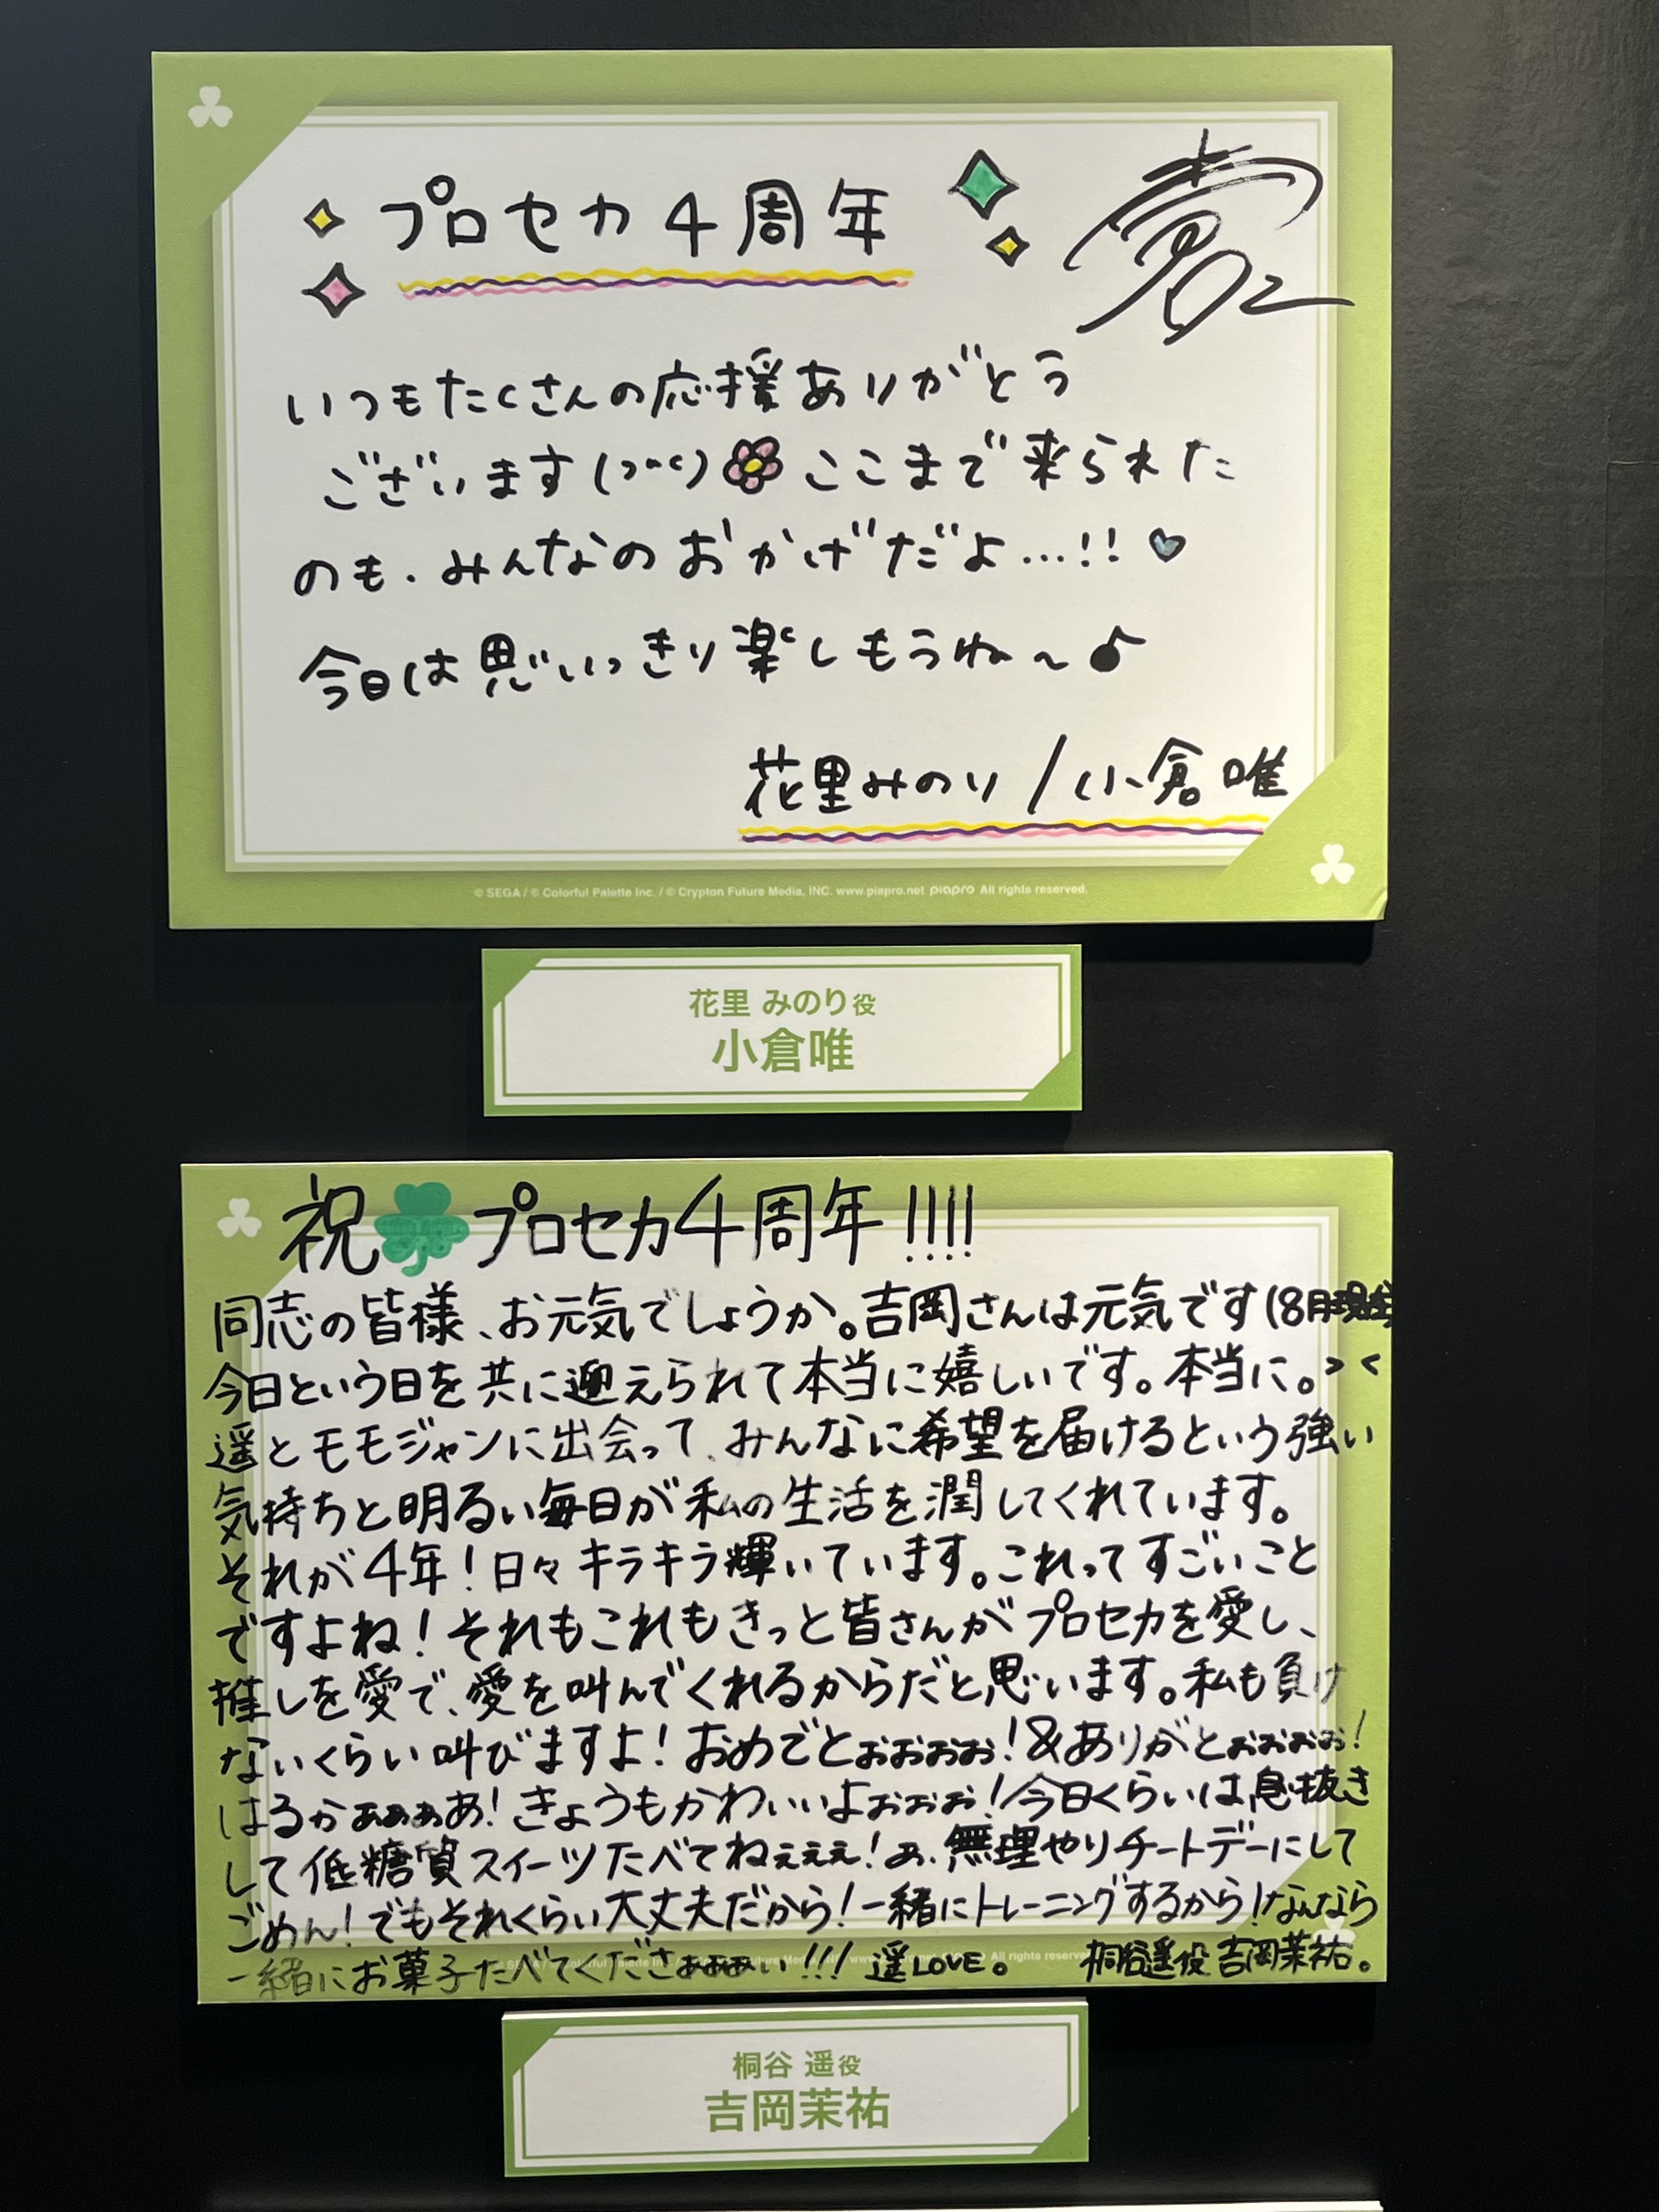 プロセカ4周年
いつもたくさんの応援ありがとう
ございます ここまで来られた
のも、みんなのおかげだよ…!!
今日は思いっきり楽しもうね～♪
花里みのり/小倉唯
© SEGA / © Colorful Palette Inc. / © Crypton Future Media, INC. www.piapro.net piapro All rights reserved.
花里 みのり役
小倉唯
祝プロセカ4周年!!!!
同志の皆様、お元気でしょうか。吉岡さんは元気です(8月現在)
今日という日を共に迎えられて本当に嬉しいです。本当に。><
遥とモモジャンに出会って、みんなに希望を届けるという強い
気持ちと明るい毎日が私の生活を潤してくれています。
それが4年!日々キラキラ輝いています。これってすごいこと
ですよね!それもこれもきっと皆さんがプロセカを愛し、
推しを愛で、愛を叫んでくれるからだと思います。私も負け
ないくらい叫びますよ!おめでとぉぉぉぉ!&ありがとぉぉぉぉ!
はるかぁぁぁあ!きょうもかわいいよぉぉぉ!今日くらいは息抜き
して低糖質スイーツたべてねぇぇぇ!あ、無理やりチートデーにして
ごめん!でもそれくらい大丈夫だから!一緒にトレーニングするから!なんなら
一緒にお菓子たべてくださぁぁぁい!!!遥LOVE。 桐谷遥役 吉岡茉祐。
All rights reserved.
桐谷 遥役
吉岡茉祐